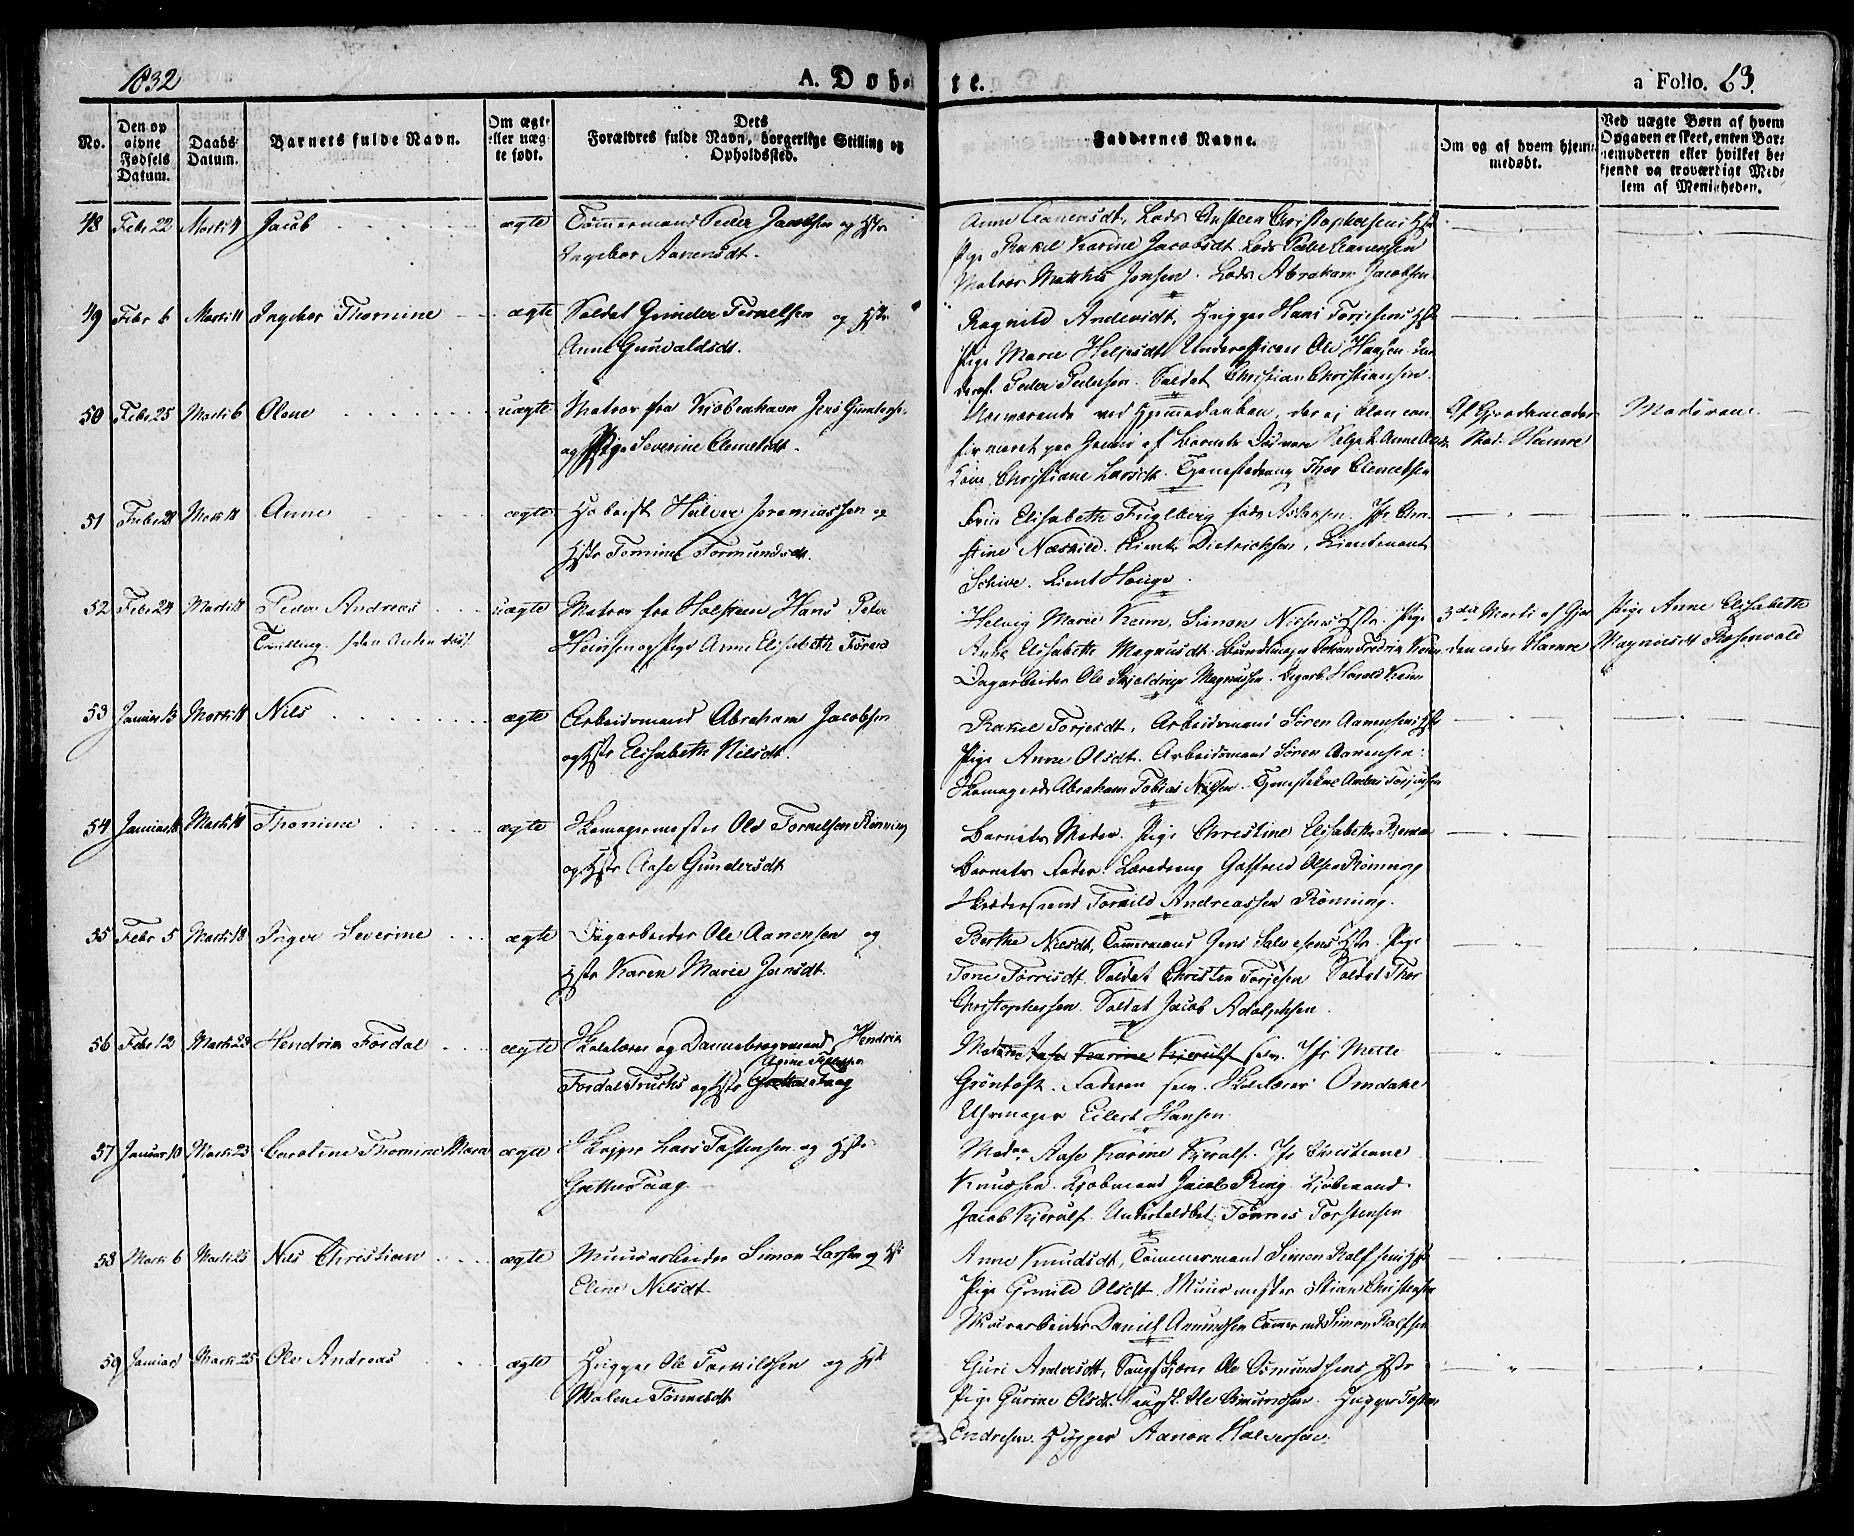 1832
A. Døb-
te.
a Folio. 63.
No.
Den op
givne
Fødsels
Datum.
Daabs-
Datum.
Barnets fulde Navn.
Om ægte
eller uæg-
te født.
Dets
Forældres fulde Navn, borgerlige Stilling og
Opholdssted.
Faddernes Navne.
Om og af hvem hjem-
medøbt.
Ved uægte Børn af hvem
Opgaven er skeet, enten Bar-
nemoderen eller hvilket be-
kjendt og troværdigt Med-
lem af Menigheden.
48 Febr 22 Marti 4 Jacob ægte Tømmermand Peder Jacobsen og Hstr
Ingebor Aanensdt.
Anne Aanensdt, Lods Christophersens Hstr
Pige Rakel Karine Jacobsdt. Lods Peder Aanensen
Matros Matthis Jensen. Lods Abraham Jacobsen
49 Febr 6 Marti 11 Ingebor Thomine ægte Soldat Gunder Terkelsen og Hstr
Anne Gunvaldsdt.
Ragnild Andersdt, Hugger Hans Torjesens Hstr
Pige Marie Heljesdt Underofficeer Ole Hansen
Peder Pedersen. Soldat Christian Christiansen
50 Febr 25 Marti 6 Olene uægte Matros fra Kjøbenhavn Jens
og Pige Severine Clemetsdt.
Nærværende ved Hjemmedaaben, der ej blev con-
firmeret paa Grund af Barnets Død vare
Christiane Larsdt. Tjenestedreng Thor Clemetsen
Af Gjordemoder
Mad. Hamre
Moderen
51 Febr 21 Mart 11 Anne ægte Hoboist Halvor Jeremiassen og
Hstr Tomine Tormundsdt.
Elisabeth Fuglberg født Aslaksen. Jfr Chri-
stine Næskild. Lieut Dietrichson, Lieutenant
Schive. Lieut Hauge.
52 Febr 24 Marti 11 Peder Andreas uægte Matros fra Holsteen Hans Peter
Tvilling. (den anden død)
Heinsen og Pige Anne Elisabeth
Helvig Marie Keun, Simon Hstr. Pige
Anne Elisabeth Magnusdt. Johan Fredrik Keun
Dagarbeider Ole Magnussen. Dagarb. Harald Keun
3die Marti af Gjor-
demoder Hamre
Pige Anne Elisabeth
Magnusdt Rosenvold
53 Januar 13 Marti 11 Nils ægte Arbeidsmand Abraham Jacobsen
og Hstr Elisabeth Nilsdt.
Rakel Torjesdt, Arbeidsmand Søren Aanensens Hstr
Pige Anne Olsdt. Arbeidsmand Søren Aanensen.
Skomagerd. Abraham Tobias Nilsen. Tjenestekarl Anders Torjussen
54 Januar Marti 18 Thomine ægte Skomagermester Ole Torkelsen Rønning
og Hstr Aase Gundersdt
Barnets Moder. Pige Christine Elisabeth
Barnets Fader. Læredreng Gotfried Olsen Rønning
Skræddersvend Torkild Andreassen Rønning.
55 Febr 5 Marti 18 Inger Severine ægte Dagarbeider Ole Aanensen og
Hstr Karen Marie Jensdt.
Berthe Nielsdt, Tømmermand Jens Salvesens Hstr. Pige
Tone Torrisdt. Soldat Christen Torjesen Soldat Thor
Christophersen. Soldat Jacob Adolphsen.
56 Febr 12 Mart 23 Hendrik Fordal ægte Skolelærer og Dannebrogsmand Hendrik
Fordal Trucks og Hstr
Moderen selv. Jfr Mette
Grøntoft. Faderen selv. Skolelærer Omdahl
Uhrmager Eilert Hansen.
57 Januar 10 Mart 23 Caroline Thomine Mara ægte Skipper Lars Tostensen og Hstr
Grethe Faag
Madam Aase Karine Kjerulf. Jfr Christiane
Knudsen. Kjøbmand Jacob Ring. Kjøbmand
Jacob Kjerulf. Tønnes Torstensen
58 Mart 6 Marti 25 Nils Christian ægte Muurarbeider Simon Larsen og Hstr
Eline Nilsdt.
Anne Knudsdt, Tømmermand Simon Rolfsens Hstr
Pige Gunild Olsdt. Muurmester Stian Christensen
Murarbeider Daniel Amundsen Tømmermd Simon Rolfsen
59 Januar 1 Mart 25 Ole Andreas ægte Hugger Ole Torkildsen og Hstr
Malene Tønnesdt
Guri Andersdt, Saugskjærer Ole Osmundsens Hstr
Pige Gurine Olsdt. Saugsk. Ole Osmundsen. Hugger Tosten
Endresen. Hugger Aanon Halvorsen.